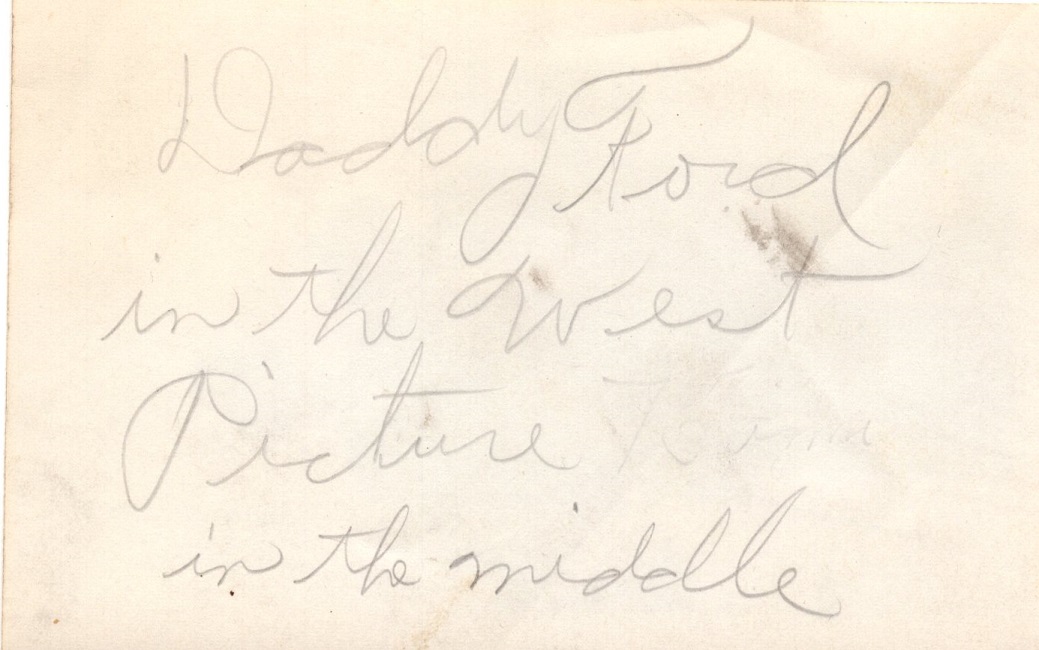 Daddy Ford
in the West
Picture
in the middle